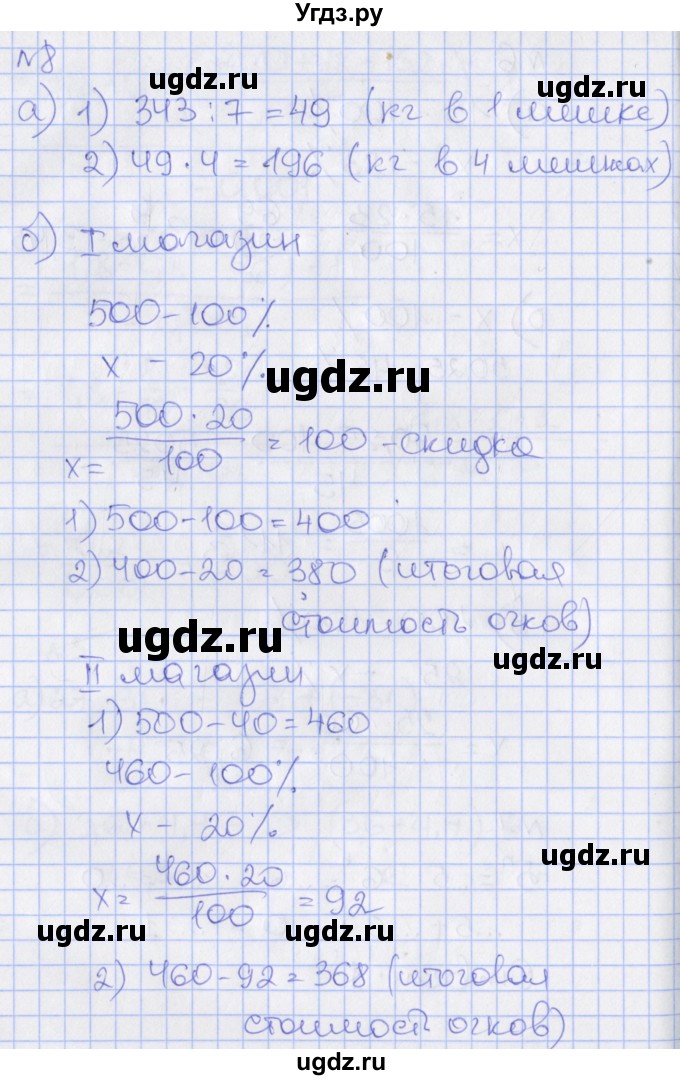 Угдз.ру
№8
ugdz.ru ugdz.ru
а) 1) 343 : 7 = 49 (кг в 1 мешке)
2) 49 · 4 = 196 (кг в 4 мешках)
ugdz.ru
б) I магазин
500 - 100%
x - 20%.
ugdz.ru
x = 500 · 20 / 100 = 100 - скидка
1) 500 - 100 = 400
2) 400 - 20 = 380 (итоговая
стоимость очков)
ugdz.ru ugdz.ru
II магазин
1) 500 - 40 = 460
460 - 100%
x - 20%
ugdz.ru
x = 460 · 20 / 100 = 92
ugdz.ru ugdz.ru ugdz.ru
2) 460 - 92 = 368 (итоговая
стоимость очков)
ugdz.ru